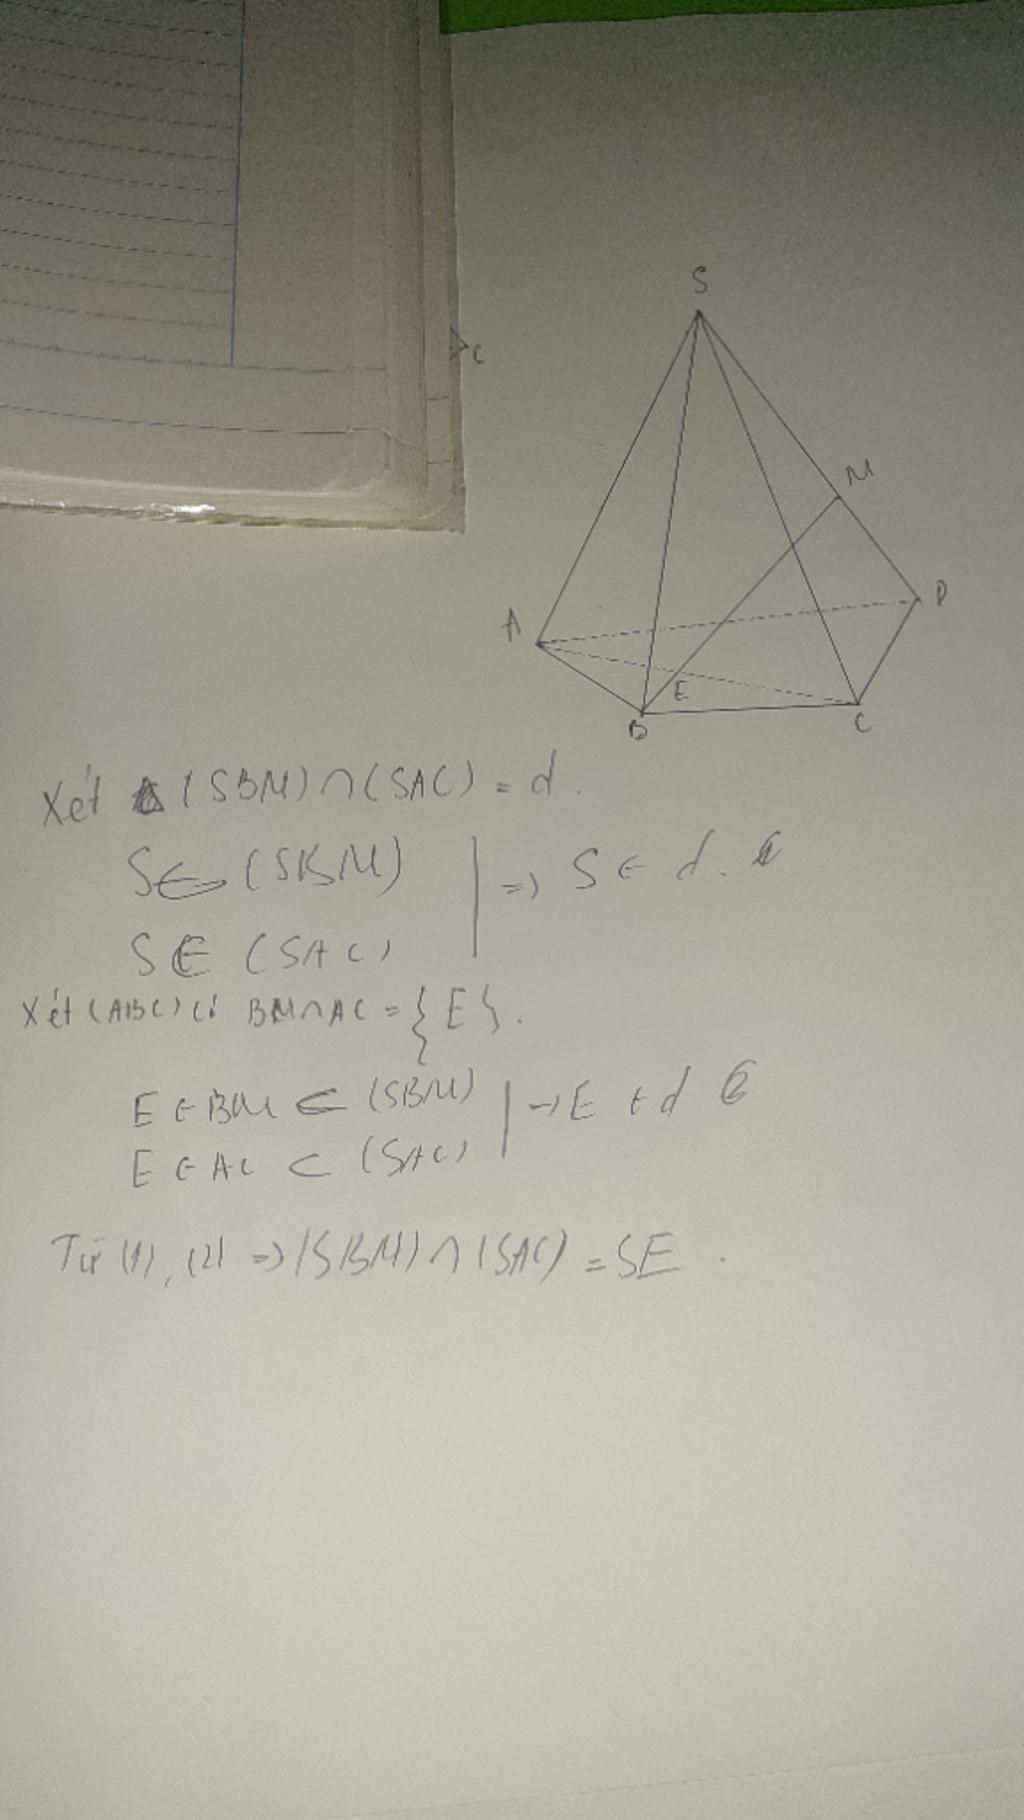 C
S
M
A
D
E
B
C
Xét (SBM)∩(SAC) = d.
S∈ (SBM) | => S ∈ d.
S∈ (SAC)
Xét (ABC) có BM∩AC = {E}.
E ∈ BM ⊂ (SBM) | => E ∈ d
E ∈ AC ⊂ (SAC)
Từ (1), (2) => (SBM)∩(SAC) = SE.